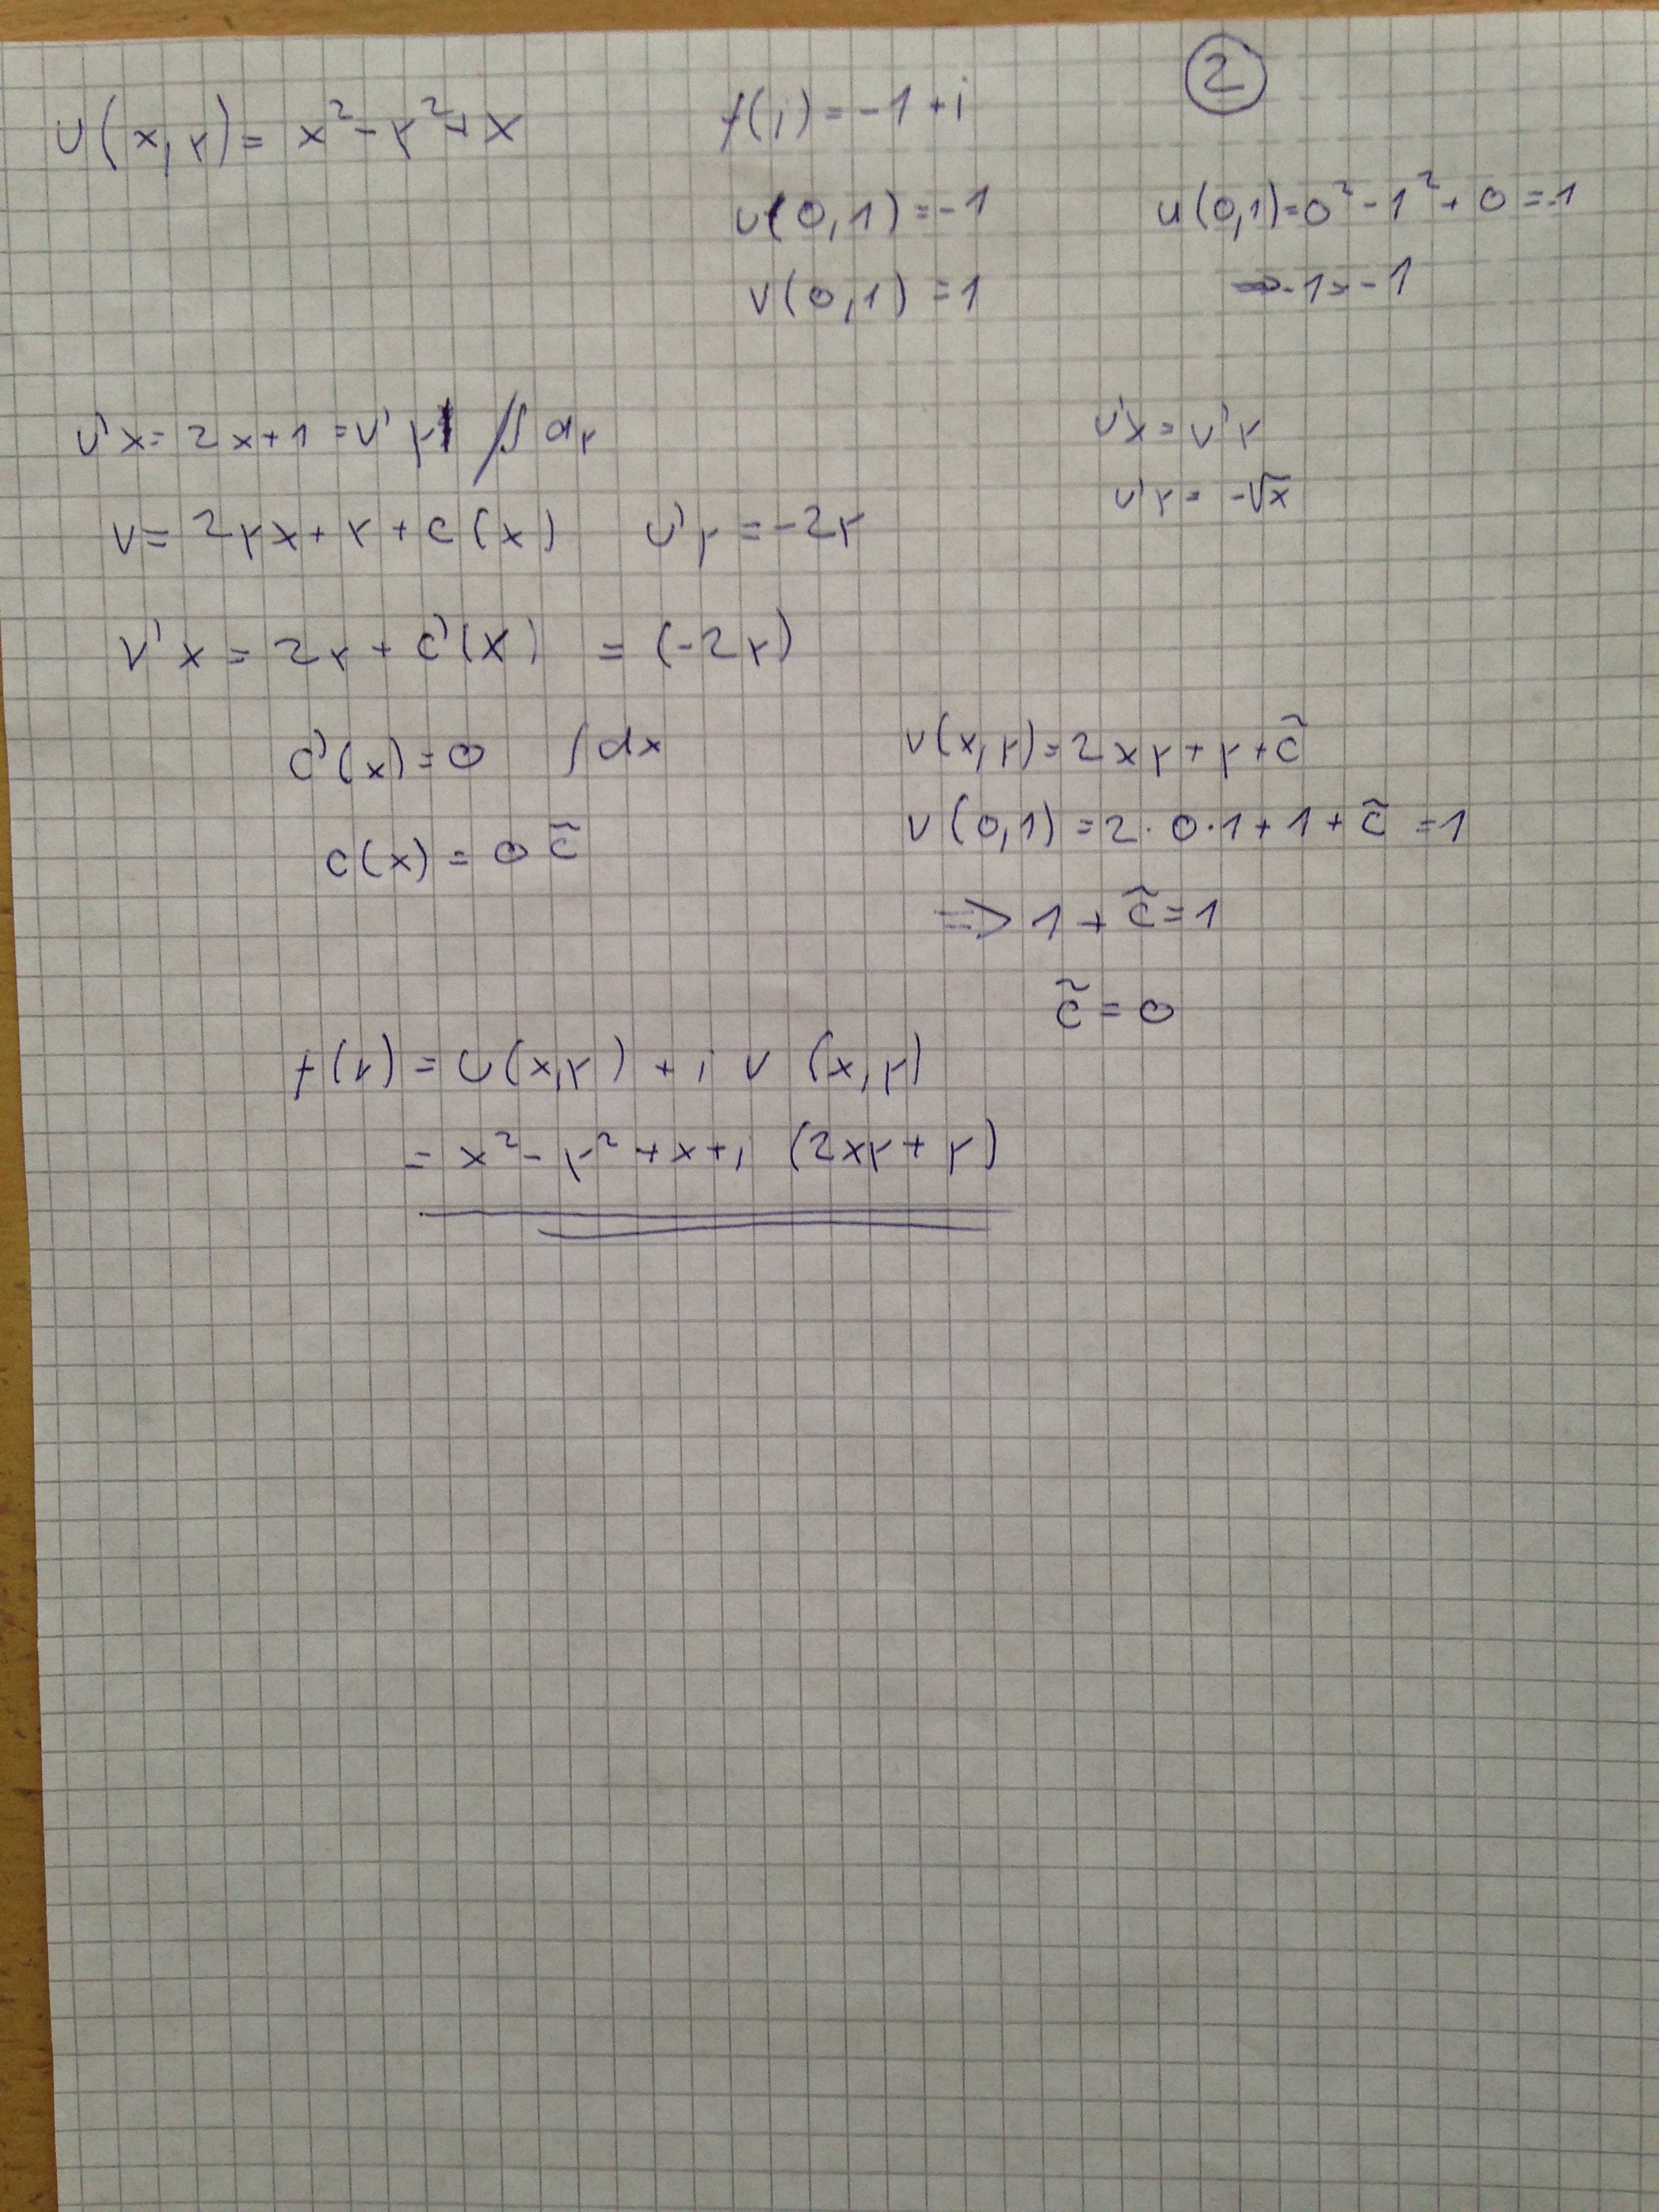 ②
u(x,y) = x² - y² + x
f(i) = -1 + i
u(0,1) = -1
v(0,1) = 1
u(0,1) = 0² - 1² + 0 = -1
⇒ -1 = -1
u'x = 2x + 1 = v'y //∫ dy
v = 2yx + y + c(x) u'y = -2y
u'x = v'y
u'y = -√x
v'x = 2y + c'(x) = (-2y)
c'(x) = 0 ∫dx
c(x) = 0 c̃
v(x,y) = 2xy + y + c̃
v(0,1) = 2·0·1 + 1 + c̃ = 1
=> 1 + c̃ = 1
c̃ = 0
f(z) = u(x,y) + i v (x,y)
= x² - y² + x + i (2xy + y)